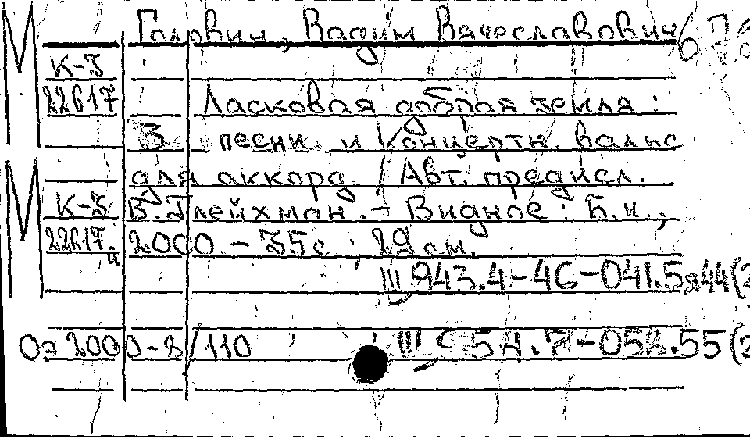 Головин, Вадим Вячеславович
К-3
22617 Ласковая добрая земля:
3 песни и концертн. вальс
для аккорд. / Авт. предисл.
К-3 В. Глейхман. - Видное: Б.и.,
22617 2000 - 35с.; 29 см.
Ш 943.4-4С-041.5я44(2
Оэ 2000-8/110 Ш С 54.71-052.55(2